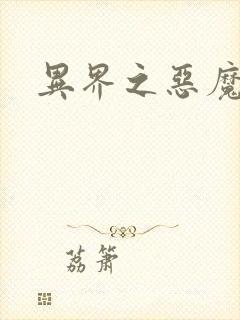 異界之惡魔
荔簫